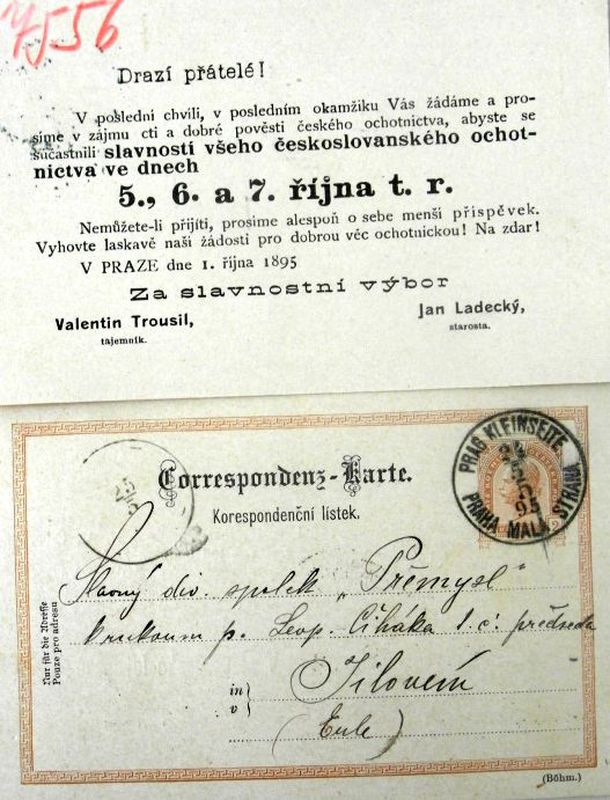 7556
Drazí přátelé!
V poslední chvíli, v posledním okamžiku Vás žádáme a pro-
síme v zájmu cti a dobré pověsti českého ochotnictva, abyste se
súčastnili slavností všeho českoslovanského ochot-
nictva ve dnech
5., 6. a 7. října t. r.
Nemůžete-li přijíti, prosíme alespoň o sebe menší příspěvek.
Vyhovte laskavě naší žádosti pro dobrou věc ochotnickou! Na zdar!
V PRAZE dne 1. října 1895
Za slavnostní výbor
Valentin Trousil,
tajemník.
Jan Ladecký,
starosta.
PRAG KLEINSEITE
95
PRAHA MALÁ STRANA
Correspondenz-Karte.
Korespondenční lístek.
Slavný div. spolek „Přemysl"
p. Leop. Čiháka 1. č. předseda
Nur für die Adresse
Pouze pro adresu
in
v
Jílovém
(Eule)
(Böhm.)